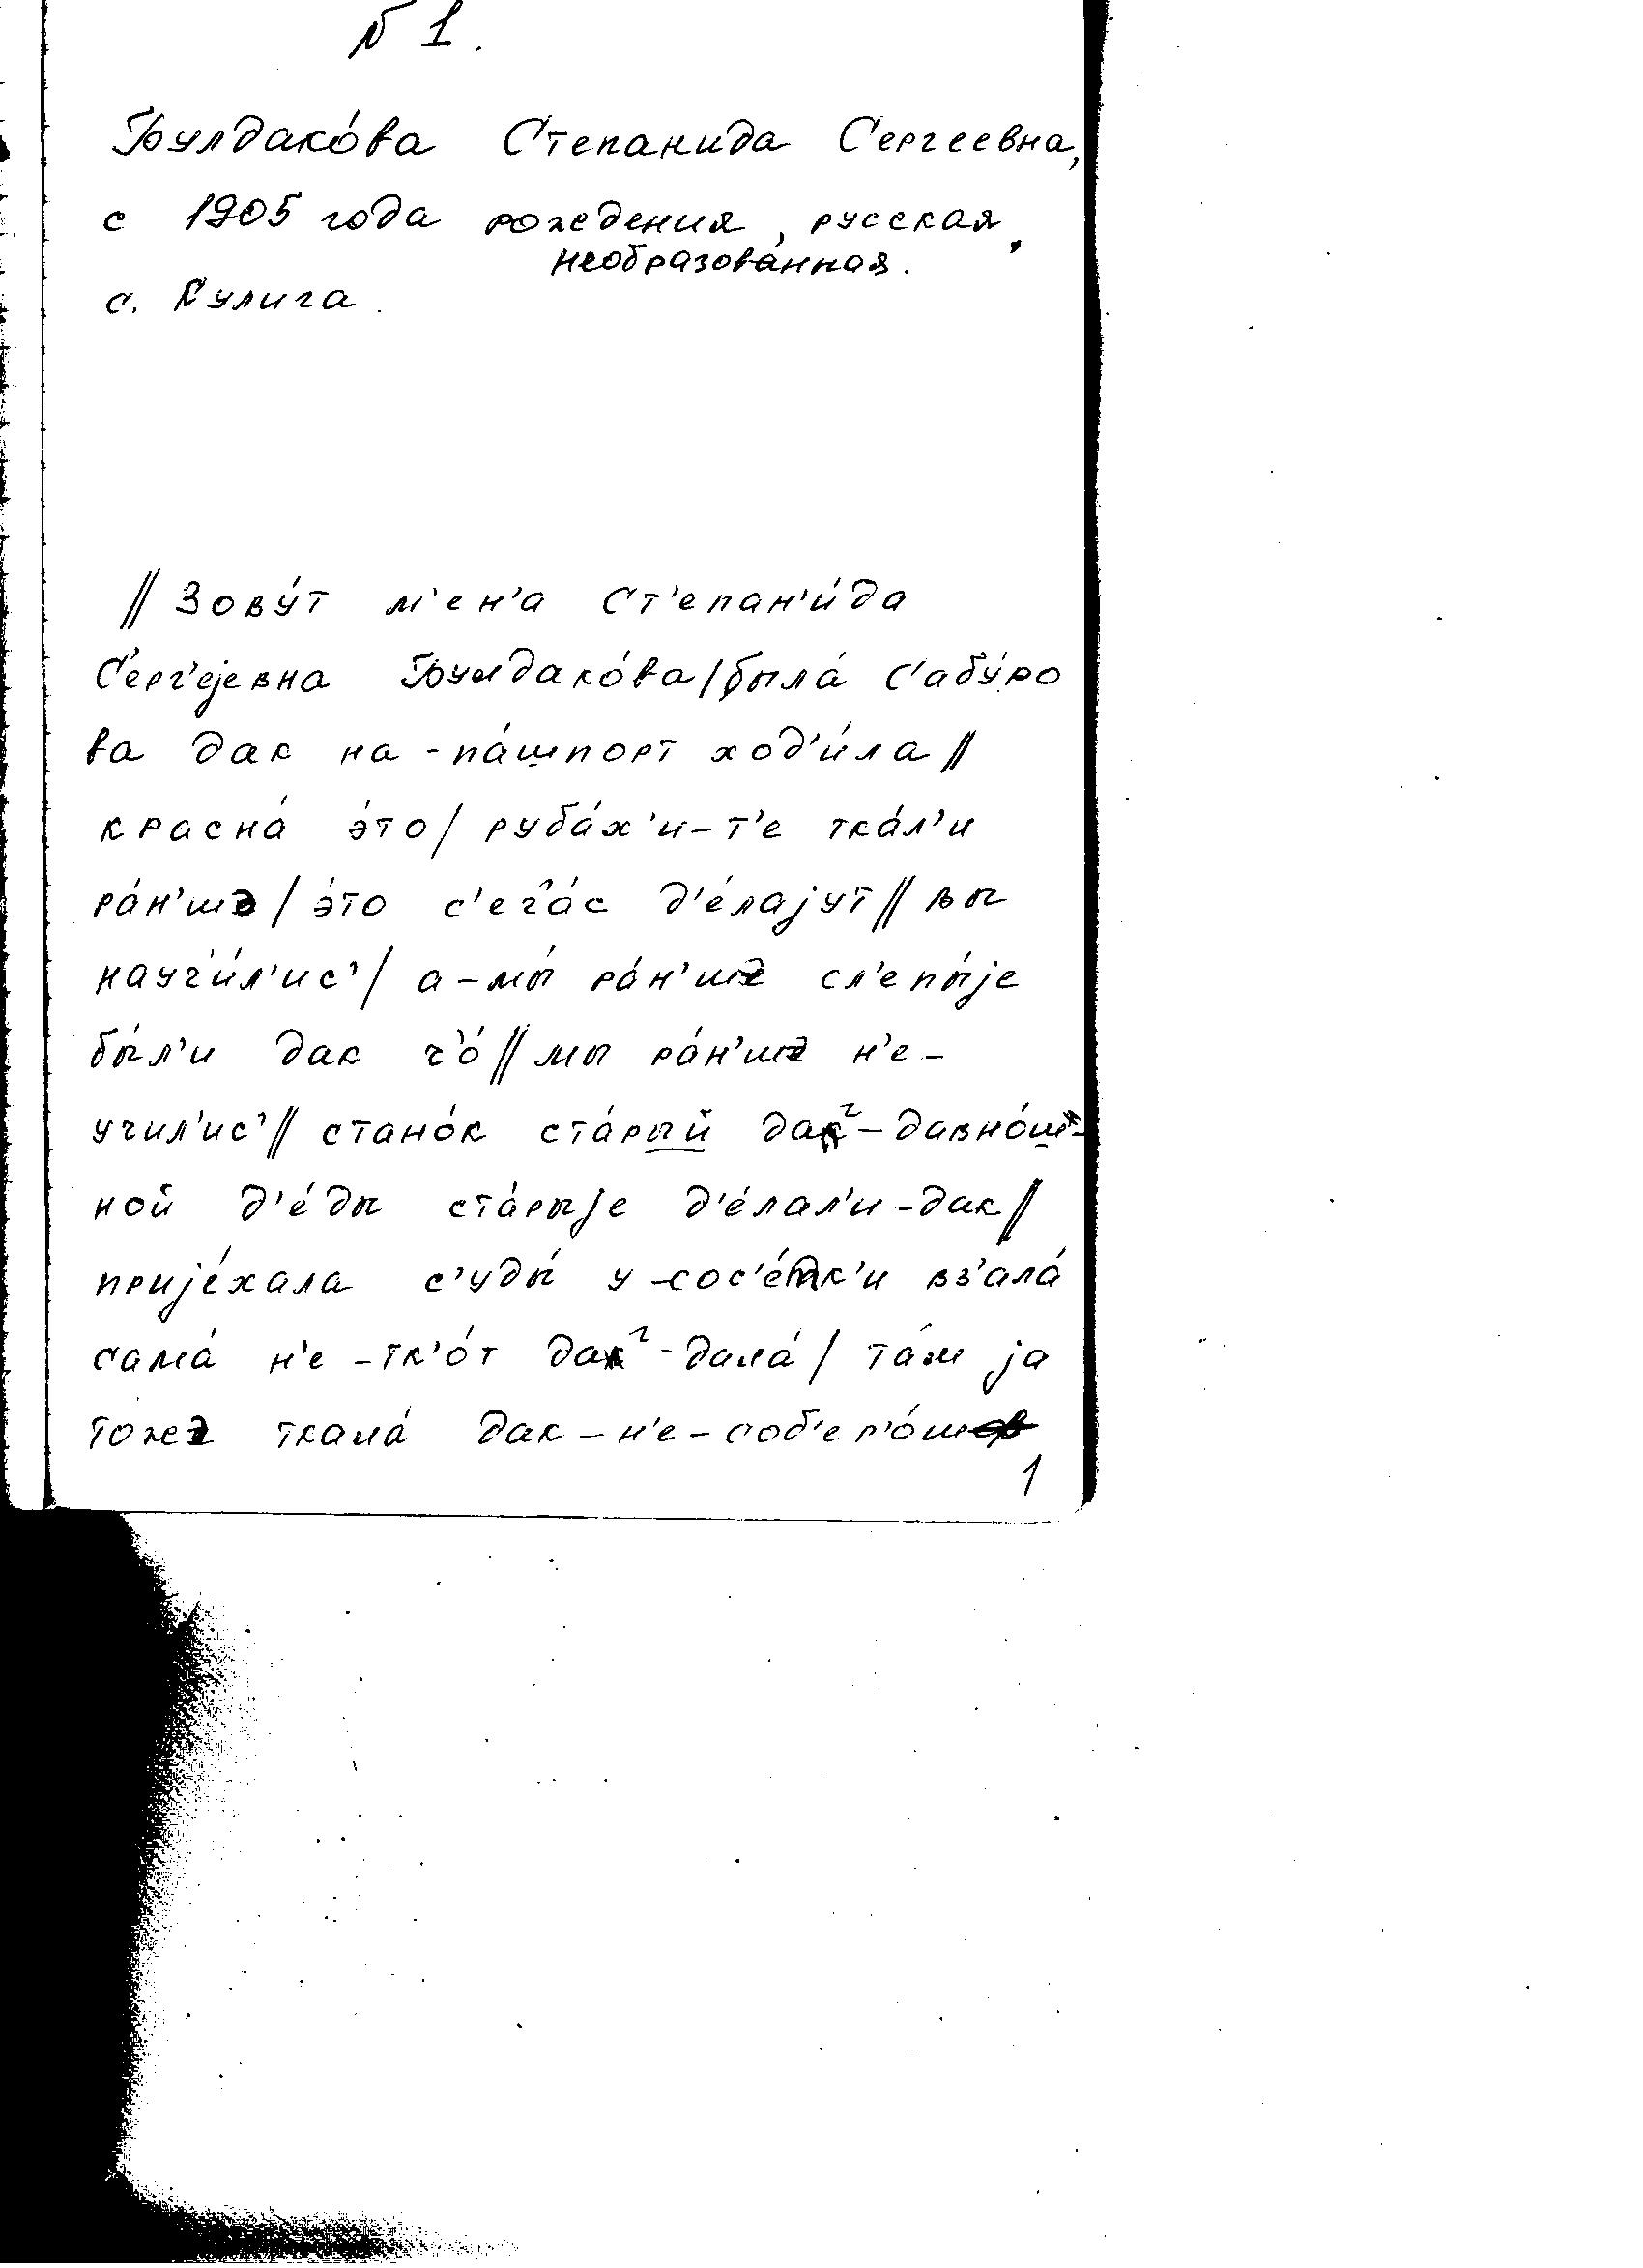 N 1.
Булдако́ва Степанида Сергеевна,
с 1905 года рождения, русская,
необразова́нная.
с. Кулига.
// Зову́т м'ен'а Ст'епан'и́да
С'ерг'ејевна Булдако́ва / была́ Сабу́ро
ва дак на-па́шпорт ход'и́ла //
красна́ э́то / руба́х'и-т'е тка́л'и
ра́н'шэ / э́то с'еч'а́с д'е́лајут // вы
науч'и́л'ис' / а-мы́ ра́н'шэ сл'епы́је
бы́л'и дак ч'о́ // мы ра́н'шэ н'е-
учил'ис' // стано́к ста́рый даг-давно́ш-
ной д'е́ды ста́рыје д'е́лал'и-дак //
приjе́хала с'уды́ у-сос'е́тк'и вз'ала́
сама́ н'е-тк'о́т даг-дала́ / та́м ја
тожэ ткала́ дак-н'е-соб'ер'о́ш
1